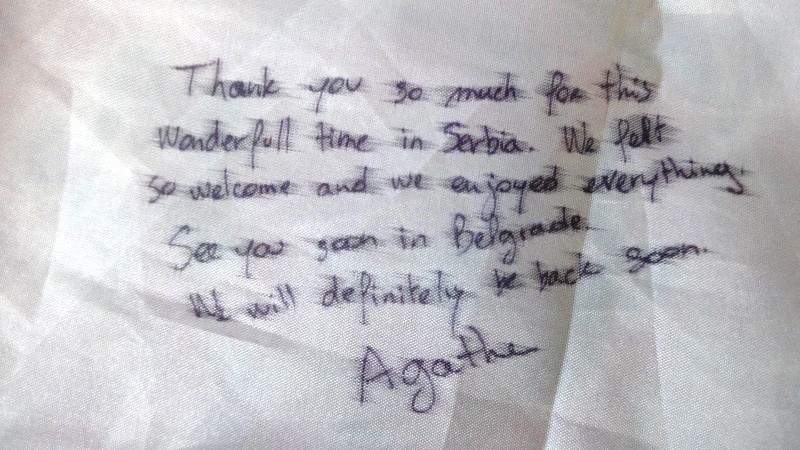 Thank you so much for this
Wonderfull time in Serbia. We felt
so welcome and we enjoyed everything.
See you soon in Belgrade.
We will definitely be back soon.
Agathe